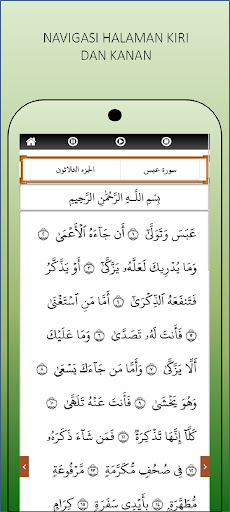 NAVIGASI HALAMAN KIRI
DAN KANAN
سورة عبس
الجزء الثلاثون
بِسْمِ اللَّـهِ الرَّحْمَٰنِ الرَّحِيمِ
عَبَسَ وَتَوَلَّىٰٓ ﴿١﴾ أَن جَآءَهُ ٱلْأَعْمَىٰ ﴿٢﴾
وَمَا يُدْرِيكَ لَعَلَّهُۥ يَزَّكَّىٰٓ ﴿٣﴾ أَوْ يَذَّكَّرُ
فَتَنفَعَهُ ٱلذِّكْرَىٰٓ ﴿٤﴾ أَمَّا مَنِ ٱسْتَغْنَىٰ
﴿٥﴾ فَأَنتَ لَهُۥ تَصَدَّىٰ ﴿٦﴾ وَمَا عَلَيْكَ
أَلَّا يَزَّكَّىٰ ﴿٧﴾ وَأَمَّا مَن جَآءَكَ يَسْعَىٰ ﴿٨﴾
وَهُوَ يَخْشَىٰ ﴿٩﴾ فَأَنتَ عَنْهُ تَلَهَّىٰ ﴿١٠﴾
كَلَّآ إِنَّهَا تَذْكِرَةٌ ﴿١١﴾ فَمَن شَآءَ ذَكَرَهُۥ
﴿١٢﴾ فِى صُحُفٍ مُّكَرَّمَةٍ ﴿١٣﴾ مَّرْفُوعَةٍ
مُّطَهَّرَةٍۭ ﴿١٤﴾ بِأَيْدِى سَفَرَةٍ ﴿١٥﴾ كِرَامٍۭ